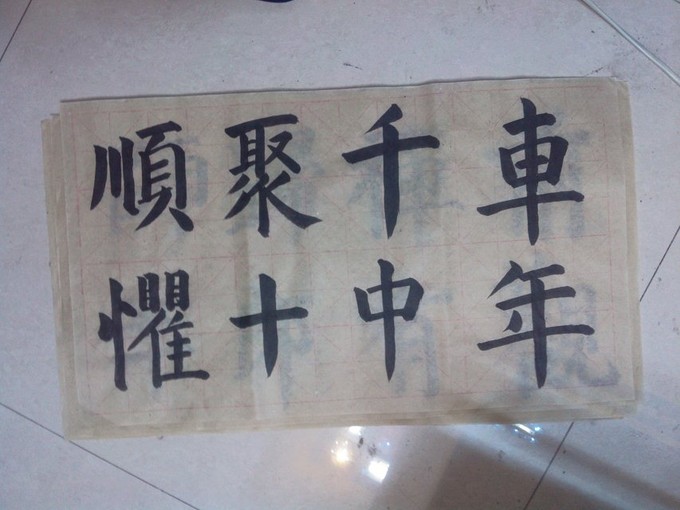 車年
千中
聚十
順懼